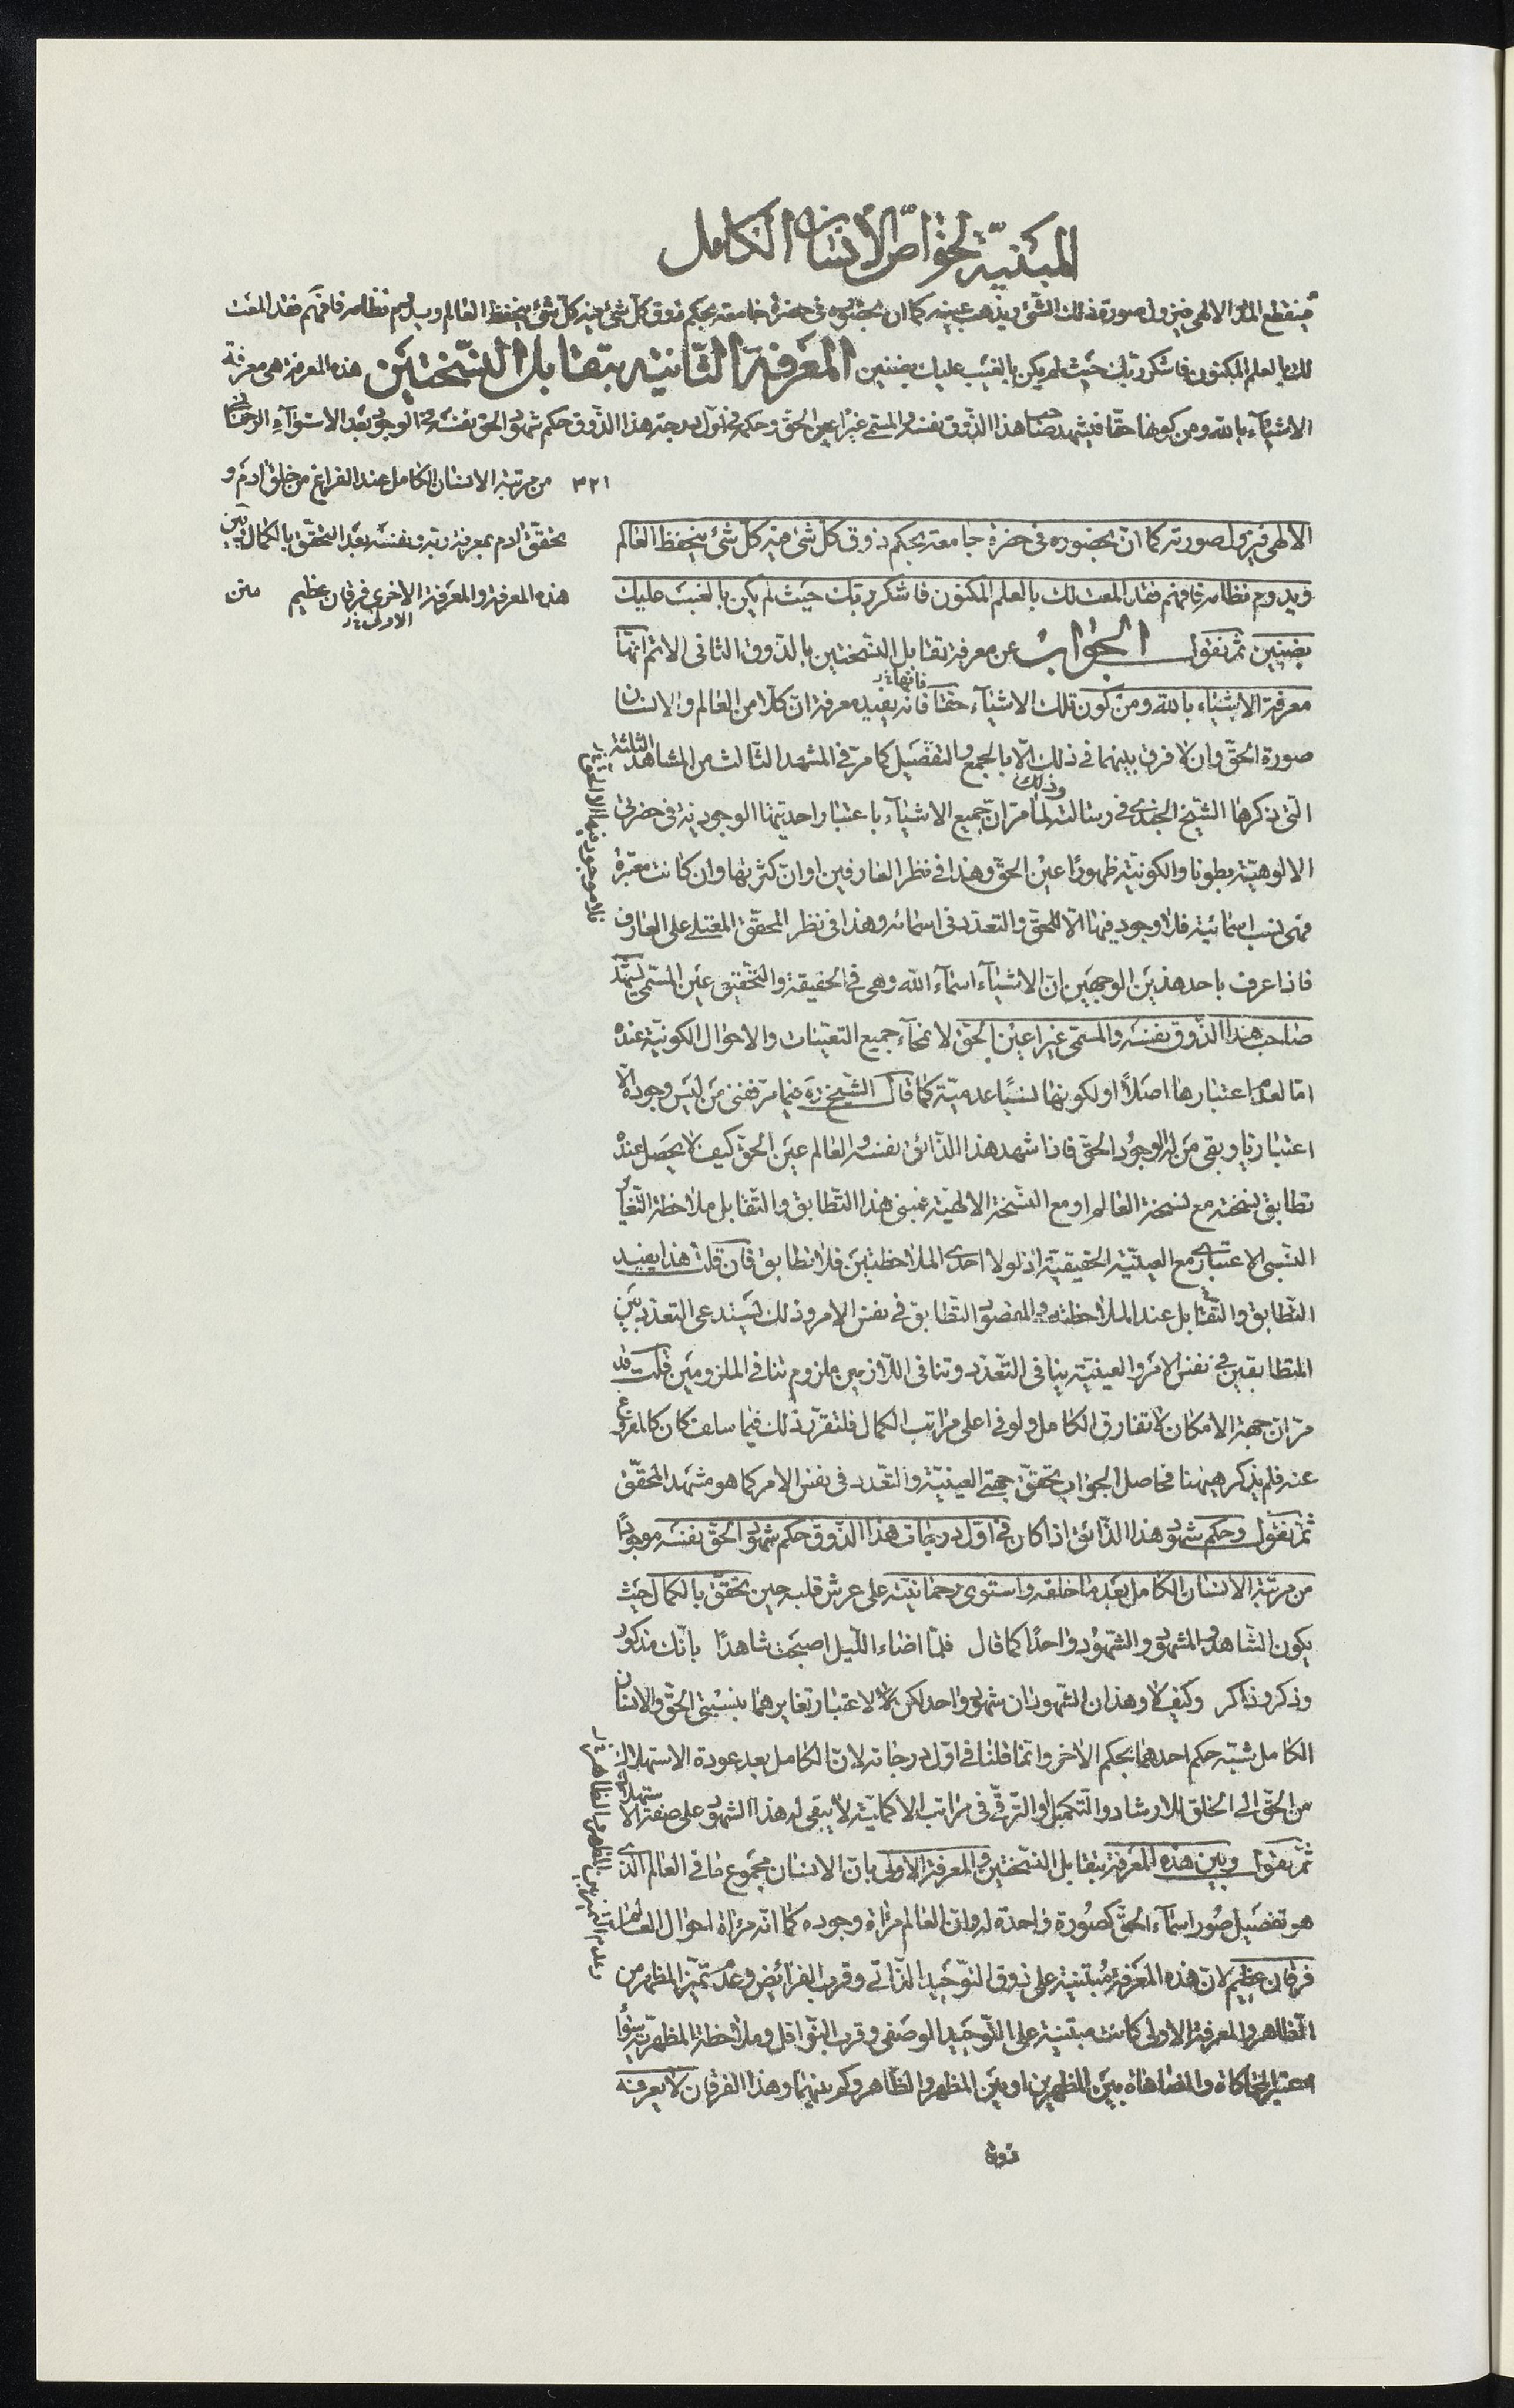 المبنية لخواص الانسان الكامل
فينقطع المدد الالهي فيزول صورة ذلك الشئ ويذهب عينه كما ان بحضوره في حضرة جامعة بحكم ذوق كل شئ فيه كل شئ ينحفظ العالم ويدوم نظامه فافهم فقد المعت
لك بالعلم المكنون فاشكر ربك حيث لم يكن بالغيب عليك بضنين المعرفة الثانية بتقابل النسختين هذه المعرفة هي معرفة
الاشياء بالله ومن كونها حقا فيشهد صاحب هذا الذوق نفسه والمسمى غيرا عين الحق وحكمه في اول درجة هذا الذوق حكم شهود الحق نفسه في الوجود بعد الاستواء الرحماني
٣٢١ من مرتبة الانسان الكامل عند الفراغ من خلق ادم و
تحقق ادم بمعرفة ربه ونفسه بعد التحقق بالكمال وبين
هذه المعرفة والمعرفة الاخرى فرقان عظيم متن
الاولى
الالهي فيزول صورته كما ان بحضوره في حضرة جامعة بحكم ذوق كل شئ فيه كل شئ ينحفظ العالم
ويدوم نظامه فافهم فقد المعت لك بالعلم المكنون فاشكر ربك حيث لم يكن بالغيب عليك
بضنين ثم نقول الجواب عن معرفة تقابل النسختين بالذوق الثاني الاتم انها
معرفة الاشياء بالله ومن كون تلك الاشياء حقا فانه يفيد معرفة ان كلا من العالم والانسان
فانها
صورة الحق وان لا فرق بينهما في ذلك الا بالجمع والتفصيل كما مر في المشهد الثالث من المشاهد الثلثة
التي ذكرها الشيخ الجندي في رسالته وذلك لما مر ان جميع الاشياء باعتبار واحديتها الوجودية في حضرتي
الالوهية بطونا والكونية ظهورا عين الحق وهذا في نظر العارفين او ان كثرتها وان كانت معتبرة
فهي نسب اسمائية فلا وجود فيها الا للحق والتعدد في اسمائه وهذا في نظر المحقق المعتلي على العارف
فاذا عرف باحد هذين الوجهين ان الاشياء اسماء الله وهي في الحقيقة والتحقيق عين المسمى يشهد
صاحب هذا الذوق نفسه والمسمى غيرا عين الحق لانمحاء جميع التعينات والاحوال الكونية عنده
اما لعدم اعتبارها اصلا او لكونها نسبا عدمية كما قال الشيخ ره فيما مر ففني من ليس وجوده الا
اعتباريا وبقي من له الوجود الحق فاذا شهد هذا الذائق نفسه والعالم عين الحق كيف لا يحصل عنده
تطابق نسخته مع نسخة العالم او مع النسخة الالهية فمبنى هذا التطابق والتقابل ملاحظة التغاير
النسبي الاعتباري مع العينية الحقيقية اذ لولا احدى الملاحظتين فلا تطابق فان قلت هذا يفيد
التطابق والتقابل عند الملاحظة والمقصود التطابق في نفس الامر وذلك يستدعي التعدد بين
المتطابقين في نفس الامر والعينية ينافي التعدد وتنافي اللازمين ملزوم تنافي الملزومين قلت قد
مر ان جهة الامكان لا تفارق الكامل ولو في اعلى مراتب الكمال فلتقرر ذلك فيما سلف كان كالمفروغ
عنه فلم يذكر ههنا فحاصل الجواب تحقق جهتي العينية والتعدد في نفس الامر كما هو مشهد المحقق
ثم نقول وحكم شهود هذا الذائق اذا كان في اول درجات هذا الذوق حكم شهود الحق نفسه موجودا
من مرتبة الانسان الكامل بعد ما خلقه واستوى رحمانيته على عرش قلبه حين تحقق بالكمال حيث
يكون الشاهد والمشهود والشهود واحدا كما قال فلما اضاء الليل اصبحت شاهدا بانك مذكور
وذكر وذاكر وكيف لا وهذان الشهودان شهود واحد لكن لاعتبار تغايرهما بنسبتي الحق والانسان
الكامل شبه حكم احدهما بحكم الاخر وانما قلنا في اول درجاته لان الكامل بعد عودة الاستهلاك
من الحق الى الخلق للارشاد والتكميل او الترقي في مراتب الاكملية لا يبقى له هذا الشهود على صفة الاستهلاك
ثم نقول وبين هذه المعرفة بتقابل النسختين والمعرفة الاولى بان الانسان مجموع ما في العالم الذي
هو تفصيل صور اسماء الحق كصورة واحدة له وان العالم مرآة وجوده كما انه مرآة احوال العالم
فرقان عظيم لان هذه المعرفة مبتنية على ذوق التوحيد الذاتي وقرب الفرائض وعدم تميز المظهر من
الظاهر والمعرفة الاولى كانت مبتنية على التوحيد الوصفي وقرب النوافل وملاحظة المظهرية سواء
اعتبر المحاكاة والمضاهاة بين المظهرين او بين المظهر والظاهر وكم بينهما وهذا الفرقان لا يعرفه
وعدم التميز بين المظهر والظاهر
ذوقا